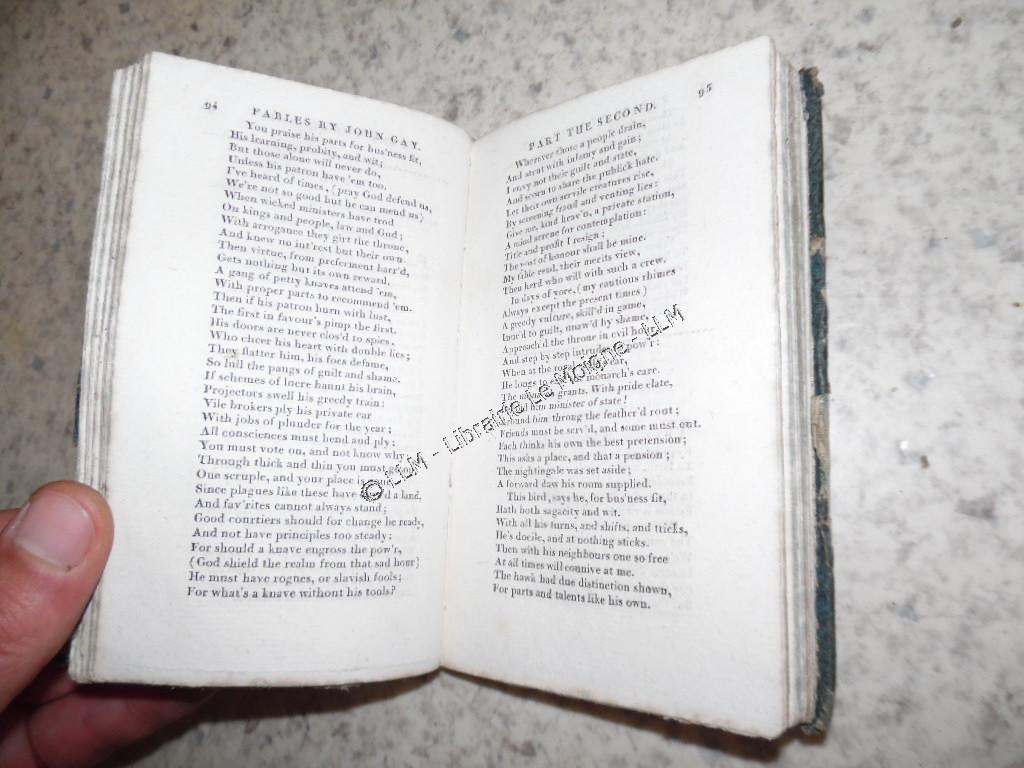 94
FABLES BY JOHN GAY.
You praise his parts for bus'ness fit,
His learning, probity, and wit;
But those alone will never do,
Unless his patron have 'em too.
I've heard of times, (pray God defend us,
We're not so good but he can mend us)
When wicked ministers have trod
On kings and people, law and God;
With arrogance they girt the throne,
And knew no int'rest but their own.
Then virtue, from preferment barr'd,
Gets nothing but its own reward.
A gang of petty knaves attend 'em,
With proper parts to recommend 'em.
Then if his patron burn with lust,
The first in favour's pimp the first.
His doors are never clos'd to spies,
Who cheer his heart with double lies;
They flatter him, his foes defame,
So lull the pangs of guilt and shame.
If schemes of lucre haunt his brain,
Projectors swell his greedy train:
Vile brokers ply his private ear
With jobs of plunder for the year;
All consciences must bend and ply;
You must vote on, and not know why:
Through thick and thin you must
One scruple, and your place is
Since plagues like these have a land,
And fav'rites cannot always stand;
Good courtiers should for change be ready,
And not have principles too steady:
For should a knave engross the pow'r,
(God shield the realm from that sad hour)
He must have rognes, or slavish fools;
For what's a knave without his tools?
95
PART THE SECOND.
Wherever those a people drain,
And strut with infamy and gain;
I envy not their guilt and state,
And scorn to share the publick hate.
Let their own servile creatures rise,
By screening fraud and venting lies:
Give me, kind heav'n, a private station,
A mind serene for contemplation:
Title and profit I resign;
The post of honour shall be mine.
My fable read, their merits view,
Then herd who will with such a crew.
In days of yore, (my cautious rhimes
Always except the present times)
A greedy vulture, skill'd in game,
Inur'd to guilt, unaw'd by shame,
Approach'd the throne in evil hour,
And step by step intrudes to pow'r:
When at the royal ear,
He longs to monarch's care.
The grants. With pride elate,
him minister of state!
Around him throng the feather'd rout;
Friends must be serv'd, and some must out.
Each thinks his own the best pretension;
This asks a place, and that a pension;
The nightingale was set aside;
A forward daw his room supplied.
This bird, says he, for bus'ness fit,
Hath both sagacity and wit.
With all his turns, and shifts, and tricks,
He's docile, and at nothing sticks.
Then with his neighbours one so free
At all times will connive at me.
The hawk had due distinction shown,
For parts and talents like his own.
© LLM - Librairie Le Moigne - LLM